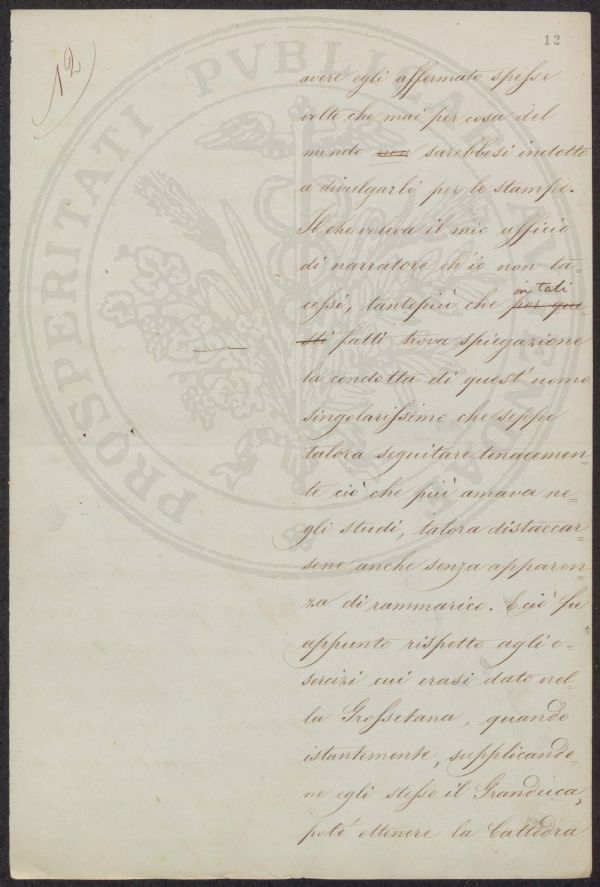 12
12
PROSPERITATI PVBLICAE AVGENDAE
avere egli affermato spesse
volte che mai per cosa del
mondo non sarebbesi indotto
a divulgarli per le stampe.
Il che voleva il mio ufficio
di narratore ch'io non ta=
cessi, tantopiù che per que=
in tali
sti fatti trova spiegazione
la condotta di quest'uomo
singolarissimo che seppe
talora seguitare tenacemen=
te ciò che più amava ne=
gli studi, talora distaccar=
sene anche senza apparen=
za di rammarico. E ciò fu
appunto rispetto agli e=
sercizi cui erasi dato nel=
la Grossetana, quando
istantemente, supplicando=
ne egli stesso il Granduca,
poté ottenere la Cattedra